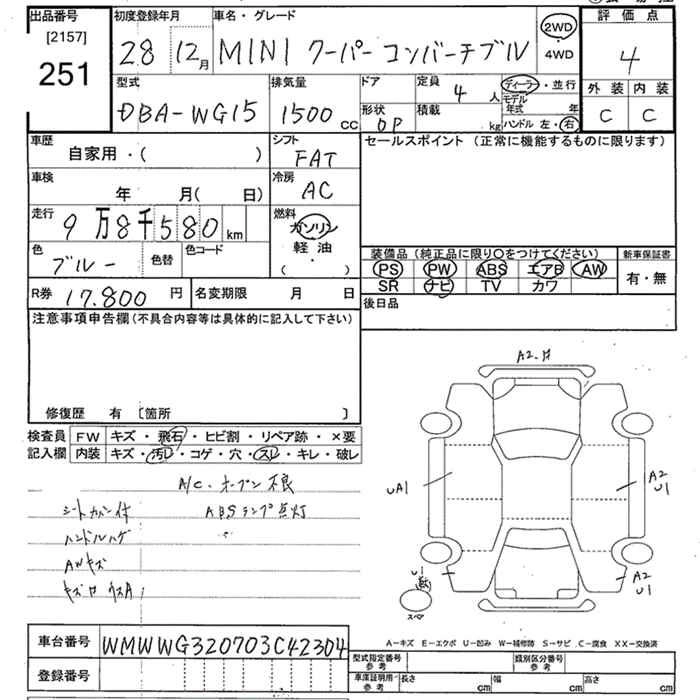 出品番号
[2157]
251
初度登録年月
28 12月
車名・グレード
MINI クーパー コンバーチブル
2WD
・
4WD
評価点
4
外装 内装
C C
型式
DBA-WG15
排気量
1500 CC
ドア
形状
OP
定員
4 人
積載
kg
ディーラー・並行
モデル
年式 年
ハンドル 左・右
車歴
自家用・( )
シフト
FAT
セールスポイント(正常に機能するものに限ります)
車検
年 月( 日)
冷房
AC
走行
9万8千580km
燃料
ガソリン
軽油
・
( )
色
ブルー
色替
色コード
装備品(純正品に限り○をつけてください)
PS PW ABS エアB AW
SR ナビ TV カワ
新車保証書
有・無
R券 17.800 円
名変期限 月 日
後日品
注意事項申告欄(不具合内容等は具体的に記入して下さい)
修復歴 有 [箇所 ]
検査員
記入欄
FW キズ・飛石・ヒビ割・リペア跡・×要
内装 キズ・汚レ・コゲ・穴・スレ・キレ・破レ
A/C・オープン不良
シートカバー付 ABSランプ点灯
ハンドルハゲ
AWキズ
A2
UA1
A2
U1
U1
A2
U1
スペア
車台番号 WMWWG320703C42304
登録番号
A-キズ E-エクボ U-凹み W-補修跡 S-サビ C-腐食 XX-交換済
型式指定番号
参考
類別区分番号
参考
車庫証明用
参考
長さ cm 幅 cm 高さ cm